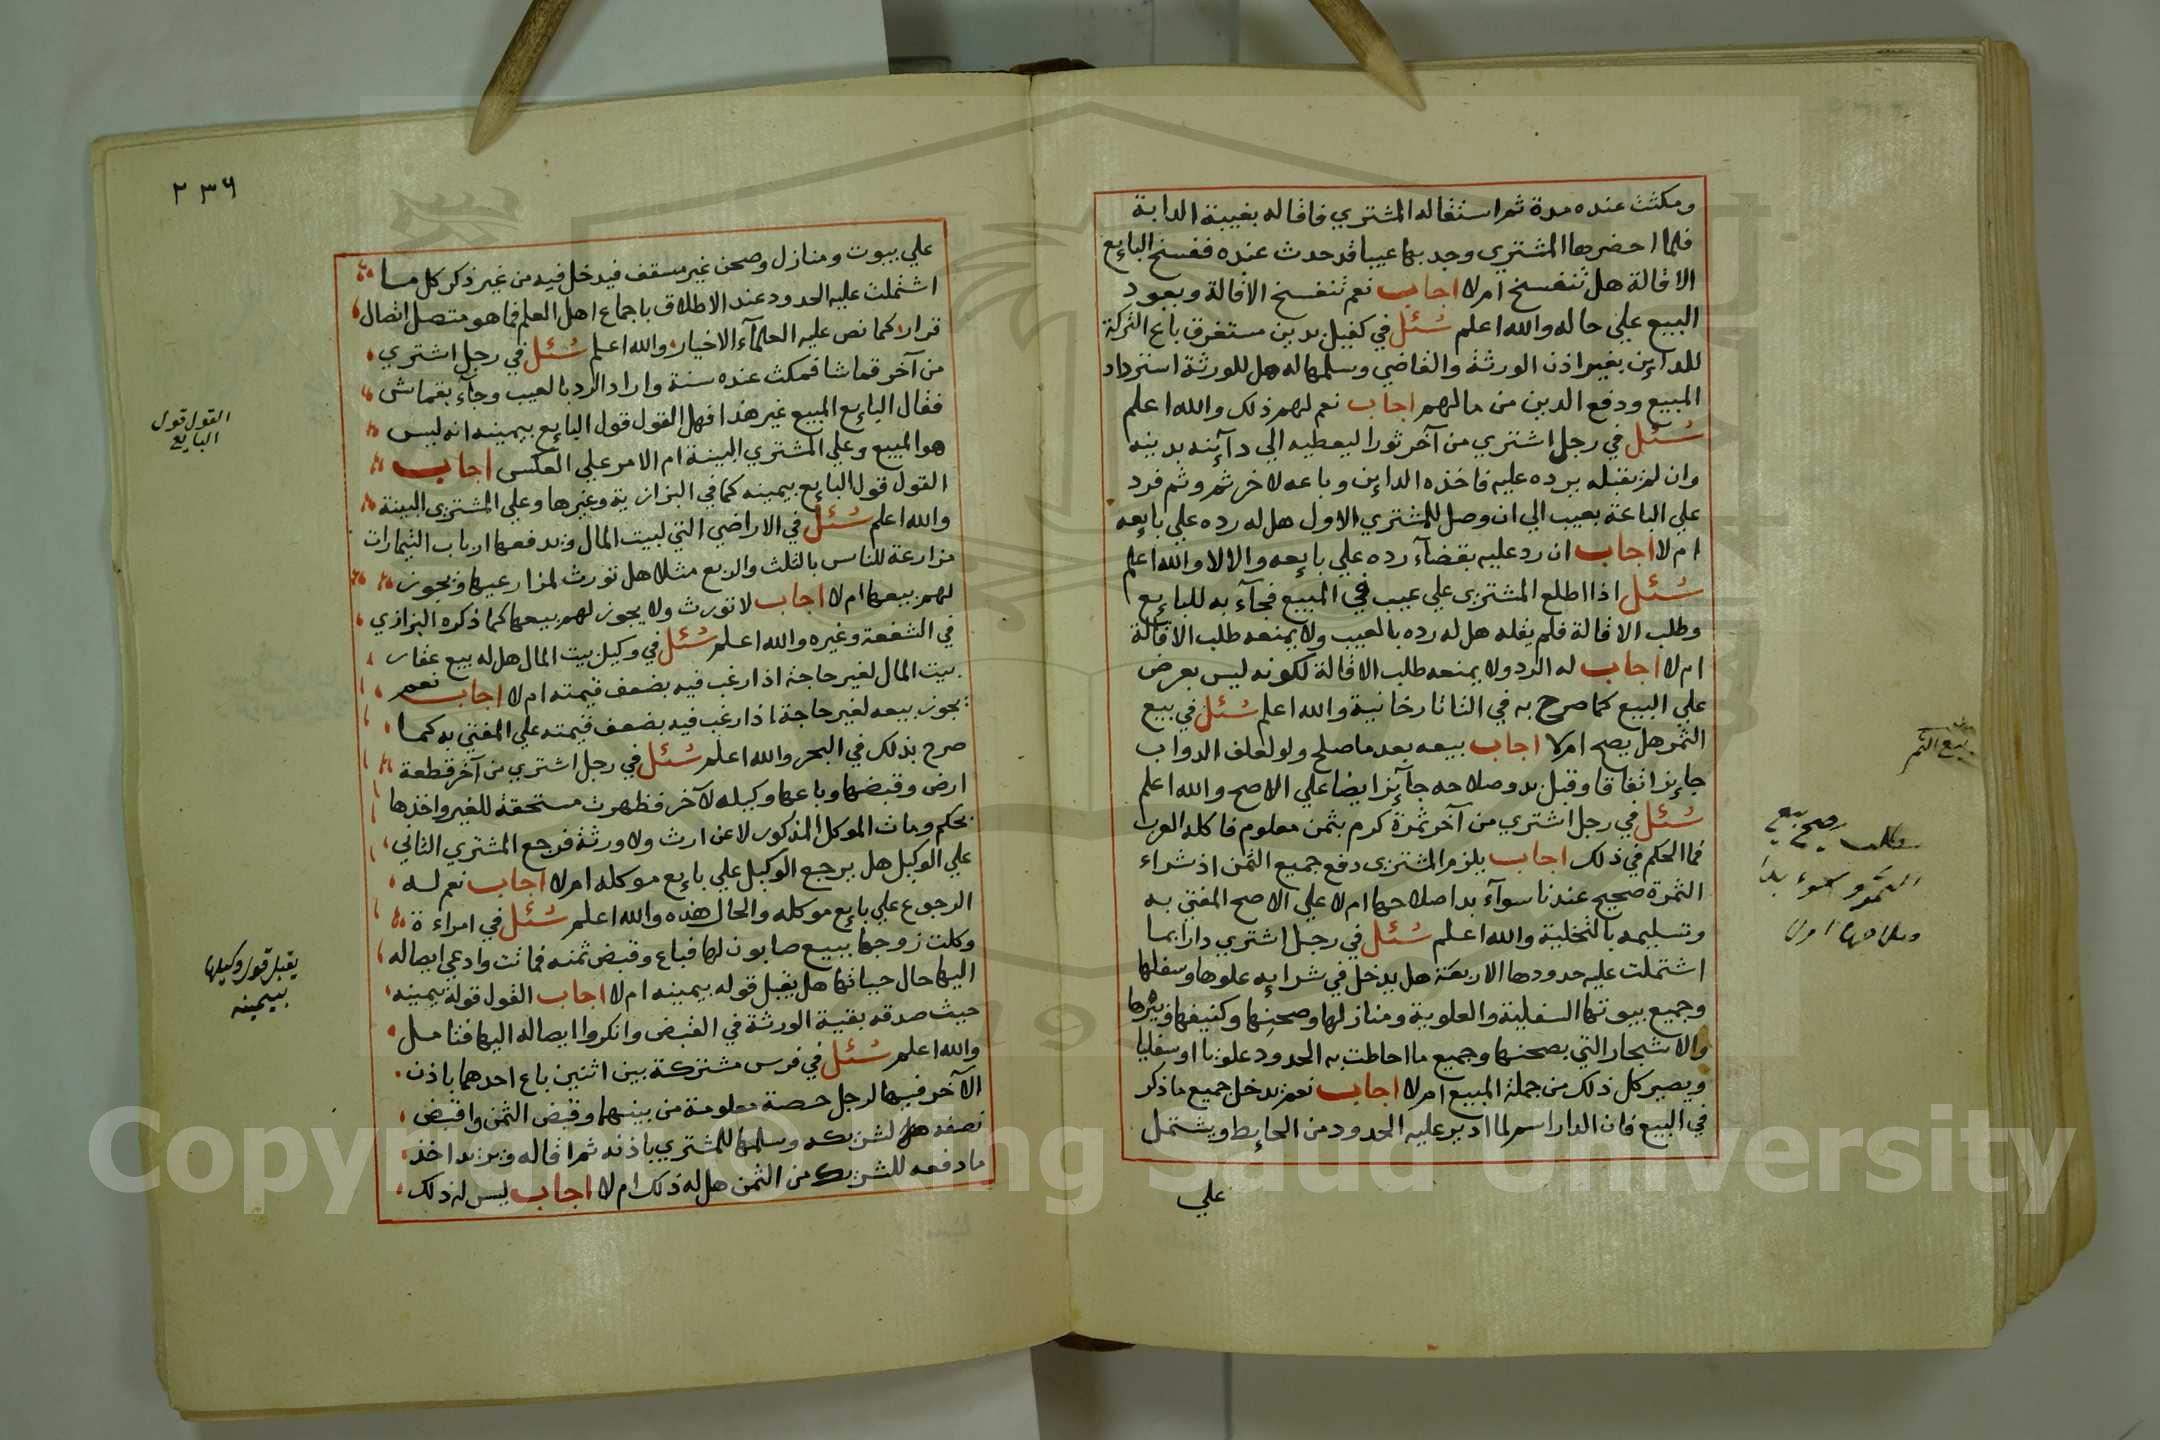 ومكثت عنده مدة ثم استقاله المشتري فاقاله بغيبة الدابة
فلما احضرها المشتري وجد بها عيبا قد حدث عنده ففسخ البايع
الاقالة هل تنفسخ ام لا اجاب نعم تنفسخ الاقالة ويعود
البيع علي حاله والله اعلم سُئل في كفيل بدين مستغرق باع التركة
للداين بغير اذن الورثة والقاضي وسلمها له هل للورثة استرداد
المبيع ودفع الدين من مالهم اجاب نعم لهم ذلك والله اعلم
سُئل في رجل اشتري من آخر ثورا ليعطيه الي دآئنه بدينه
وان لم يقبله يرده عليه فاخذه الداين وباعه لاخر ثم وثم فرد
علي الباعة بعيب الي ان وصل للمشتري الاول هل له رده علي بايعه
ام لا اجاب ان رد عليه بقضآء رده علي بايعه والا لا والله اعلم
سُئل اذا اطلع المشتري علي عيب في المبيع فجآء به للبايع
وطلب الاقالة فلم يقله هل له رده بالعيب ولا يمنعه طلب الاقالة
ام لا اجاب له الرد ولا يمنعه طلب الاقالة لكونه ليس بعرض
علي البيع كما صرح به في التاتارخانية والله اعلم سُئل في بيع
الثمر هل يصح ام لا اجاب بيعه بعد ما صلح ولو لعلف الدواب
جايز اتفاقا وقبل بدو صلاحه جآيز ايضا علي الاصح والله اعلم
سُئل في رجل اشتري من آخر ثمرة كرم بثمن معلوم فاكله العرب
فما الحكم في ذلك اجاب يلزم المشتري دفع جميع الثمن اذ شراء
الثمرة صحيح عندنا سوآء بدا صلاحها ام لا علي الاصح المفتي به
وتسليمه بالتخلية والله اعلم سُئل في رجل اشتري دارا بما
اشتملت عليه حدودها الاربعة هل يدخل في شرايه علوها وسفلها
وجميع بيوتها السفلية والعلوية ومنازلها وصحنها وكنيفها وبئرها
والاشجار التي بصحنها وجميع ما احاطت به الحدود علويا او سفليا
ويصير كل ذلك من جملة المبيع ام لا اجاب نعم يدخل جميع ما ذكر
في البيع فان الدار اسم لما ادير عليه الحدود من الحايط ويشتمل
علي
بيع الثمر
يصح بيع
٢٣٦
علي بيوت ومنازل وصحن غير مسقف فيدخل فيه من غير ذكر كل ما
اشتملت عليه الحدود عند الاطلاق باجماع اهل العلم فما هو متصل اتصال
قرار كما نص عليه العلمآء الاخيار والله اعلم سُئل في رجل اشتري
من آخر قماشا فمكث عنده سنة واراد الرد بالعيب وجآء بقماش
فقال البايع المبيع غير هذا فهل القول قول البايع بيمينه انه ليس
هو المبيع وعلي المشتري البينة ام الامر علي العكس اجاب
القول قول البايع بيمينه كما في البزازية وغيرها وعلي المشتري البينة
والله اعلم سُئل في الاراضي التي لبيت المال ويدفعها ارباب التيمارات
مزارعة للناس بالثلث والربع مثلا هل تورث لمزارعيها ويجوز
لهم بيعها ام لا اجاب لا تورث ولا يجوز لهم بيعها كما ذكره البزازي
في الشفعة وغيره والله اعلم سُئل في وكيل بيت المال هل له بيع عقار
بيت المال لغير حاجة اذا رغب فيه بضعف قيمته ام لا اجاب نعم
يجوز بيعه لغير حاجة اذا رغب فيه بضعف قيمته علي المفتي به كما
صرح بذلك في البحر والله اعلم سُئل في رجل اشتري من آخر قطعة
ارض وقبضها وباعها وكيله لآخر فظهرت مستحقة للغير واخذها
بحكم ومات الموكل المذكور لا عن ارث ولا ورثة فرجع المشتري الثاني
علي الوكيل هل يرجع الوكيل علي بايع موكله ام لا اجاب نعم له
الرجوع علي بايع موكله والحال هذه والله اعلم سُئل في امراءة
وكلت زوجها ببيع صابون لها فباع وقبض ثمنه فماتت وادعي ايصاله
اليها حال حياتها هل يقبل قوله بيمينه ام لا اجاب القول قوله بيمينه
حيث صدقه بقية الورثة في القبض وانكروا ايصاله اليها فتامل
والله اعلم سُئل في فرس مشتركة بين اثنين باع احدهما باذن
الآخر فيها لرجل حصة معلومة من بينهما وقبض الثمن واقبض
نصفه لشريكه وسلمها للمشتري باذنه ثم اقاله ويريد اخذ
ما دفعه للشريك من الثمن هل له ذلك ام لا اجاب ليس له ذلك
القول قول
البايع
يقبل قول وكيلها
بيمينه
Copyright © King Saud University